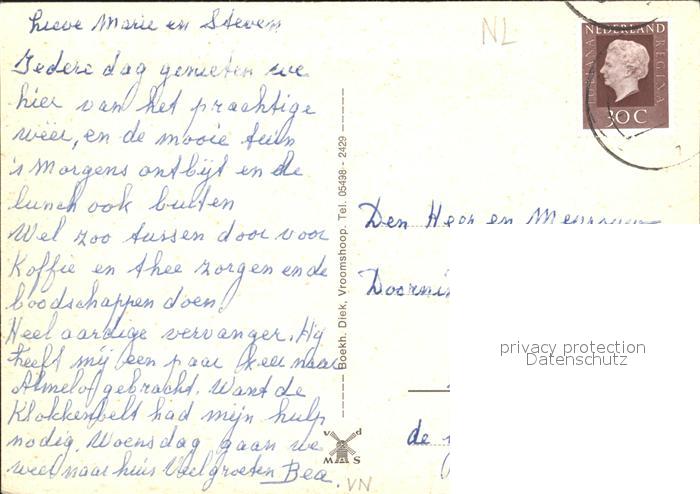 Lieve Marie en Steven
Iedere dag genieten we
hier van het prachtige
weer, en de mooie tuin
's Morgens ontbijt en de
lunch ook buiten
Wel zoo tussen door voor
Koffie en thee zorgen en de
boodschappen doen.
Heel aardige vervanger. Hij
heeft mij een paar keer naar
Almelo gebracht. Want de
Klokkenbelt had mijn hulp
nodig. Woensdag gaan we
weer naar huis Veel groeten Bea.
NL
NEDERLAND
JULIANA REGINA
30 C
Boekh. Diek, Vroomshoop. Tel. 05498 - 2429
Den Heer en Mevrouw
de
privacy protection
Datenschutz
V d
M S
VN